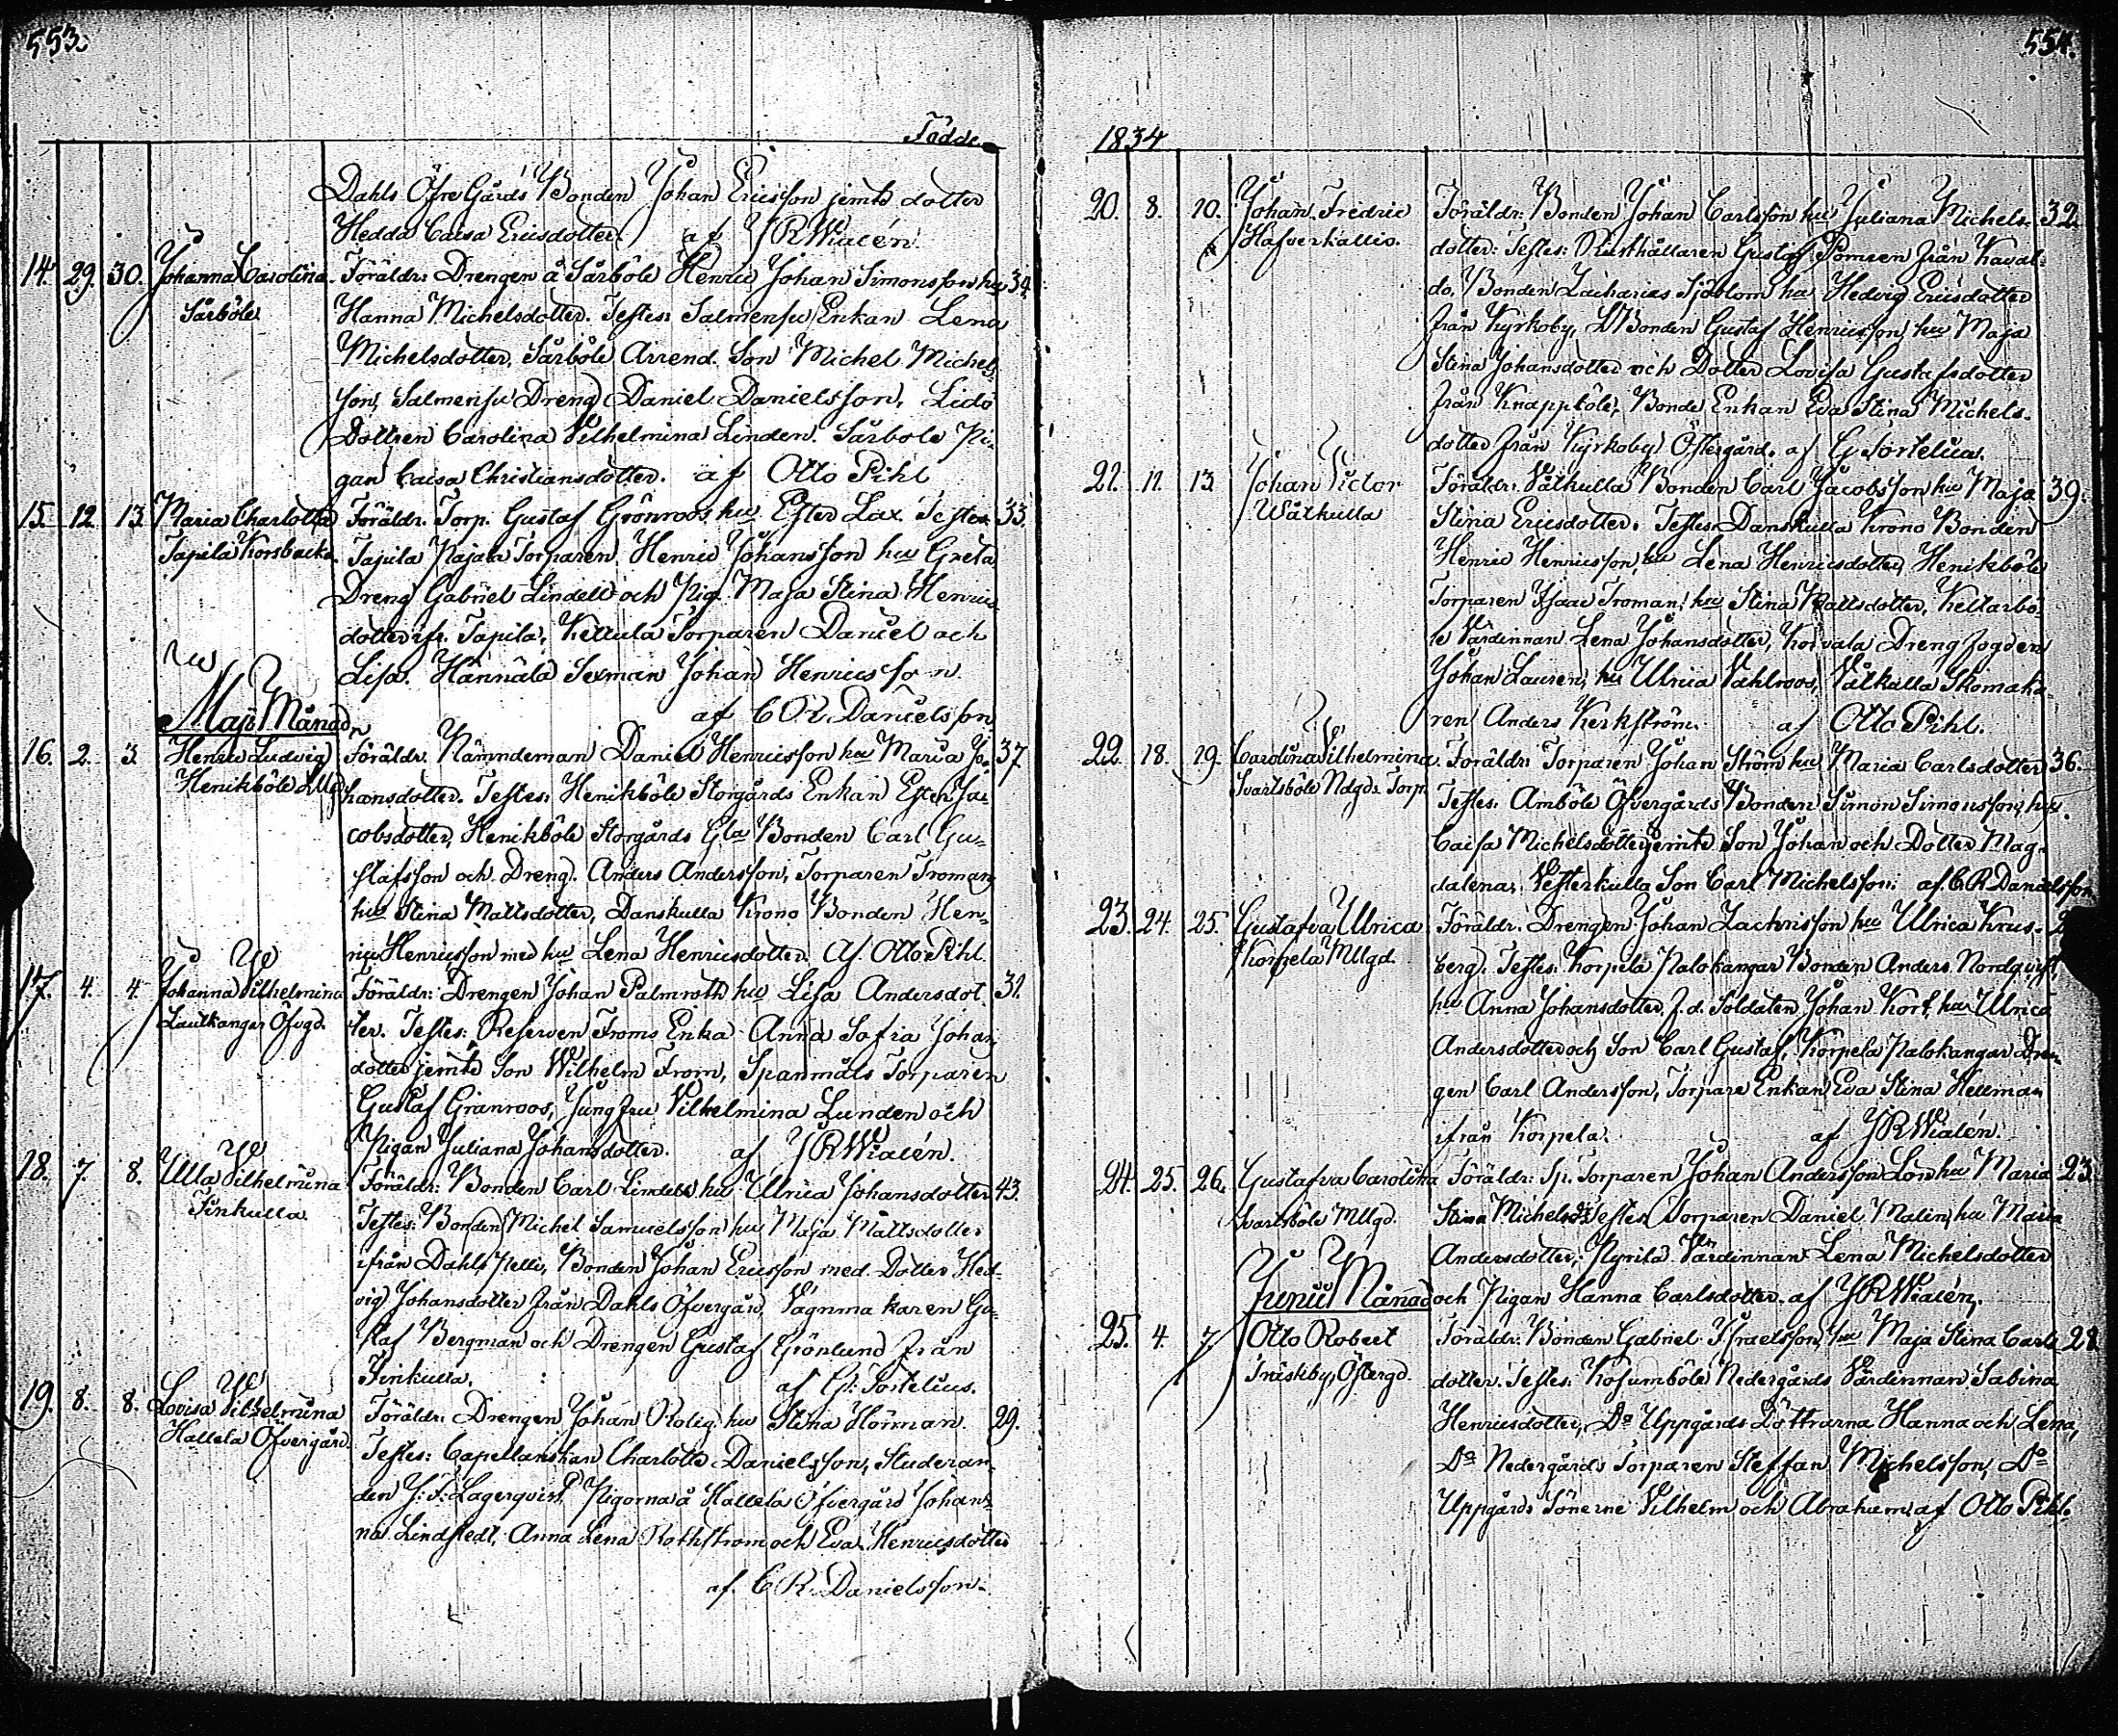 553.
Födde
Dahls Öfre Gårds Bonden Johan Ericsson jemte dotter
Hedda Caisa Ericsdotter. af J R Wialén
14. 29. 30. Johanna Carolina. Föräldr: Drengen å Sårböle Henric Johan Simonsson hu 34.
Sårböle Hanna Michelsdotter. Testes: Enkan Lena
Michelsdotter, Sårböle Arrend. Son Michel Michels-
son, Dreng Daniel Danielsson, Lidö
Dottren Carolina Vilhelmina Linden. Sårböle Pi-
gan Caisa Christiansdotter. af Otto Pihl
15. 12. 13. Maria Charlotta Föräldr. Torp. Gustaf Grönroos hu Ester Lax. Testes 33.
Tapila Korsbacka. Tapila Pajala Torparen Henric Johansson hu Greta
Dreng Gabriel Lindell och Pig. Maja Stina Henrics-
dotter ifr. Tapila, Kellula Torparen Daniel och
Lisa. Hännälä Sexman Johan Henricsson
af C R Danielsson
Maji Månad
16. 2. 3. Henric Ludvig Föräldr. Nämndeman Daniel Henricsson hu Maria Jo- 37
Henikböle hansdotter. Testes: Henikböle Storgårds Enkan Ester Ja-
cobsdotter, Henikböle Storgårds Gla Bonden Carl Gu-
stafsson och Dreng. Anders Andersson, Torparen Troman
hu Stina Mattsdotter, Danskulla Krono Bonden Hen-
ric Henricsson med hu Lena Henricsdotter. Af. Otto Pihl.
17. 4. 4. Johanna Vilhelmina Föräldr: Drengen Johan Palmroth hu Lisa Andersdot- 31.
Lautkangar Öfvgd. ter. Testes: Reserven Froms Enka Anna Sofia Johans
dotter jemte Son Wilhelm From, Spanmåls Torparen
Gustaf Granroos, Jungfru Vilhelmina Lunden och
Pigan Juliana Johansdotter. af J R Wialén.
18. 7. 8. Ulla Vilhelmina Föräldr: Bonden Carl Lindell hu Ulrica Johansdotter 43.
Finkulla. Testes: Bonden Michel Samuelsson hu Maja Mattsdotter
ifrån Dahls Pelli, Bonden Johan Ericsson med Dotter Hed-
vig Johansdotter från Dahls Öfvergård, Vagnmakaren Gu-
staf Bergman och Drengen Gustaf Grönlund från
Finkulla. af G. Fortelius.
19. 8. 8. Lovisa Vilhelmina Föräldr: Drengen Johan Rolig hu Stina Hörman. 29.
Hallela Öfvergård. Testes: Capellanskan Charlotta Danielsson, Studeran-
den J: F: Lagerqvist, Pigorna å Hallela Öfvergård Johan-
na Lindstedt, Anna Lena Rothström och Eva Henricsdotter
af. C R. Danielsson.
554.
1834
20. 8. 10. Johan Fredric Föräldr: Bonden Johan Carlsson hu Juliana Michels- 32.
Hafverkallio. dotter: Testes: Rusthållaren Gustaf Pomren från Kaval-
do. Bonden Zacharias Sjöblom hu Hedvig Ericsdotter
från Kyrkoby, Bonden Gustaf Henricsson hu Maja
Stina Johansdotter och Dotter Lovisa Gustafsdotter
från Knappböle, Bonde Enkan Eva Stina Michels-
dotter från Kyrkoby Östergård. af G Fortelius.
21. 11. 13. Johan Victor Föräldr: Våtkulla Bonden Carl Jacobsson hu Maja 39.
Våtkulla Stina Ericsdotter. Testes: Danskulla Krono Bonden
Henric Henricsson, hu Lena Henricsdotter, Henikböle
Torparen Isaac Troman, hu Stina Mattsdotter, Kettarbö-
le Värdinnan Lena Johansdotter, Korvala Drengfogden
Johan Lauren, hu Ulrica Vahlroos, Våtkulla Skomaka-
ren Anders Kerkström. af Otto Pihl.
22. 18. 19. Carolina Vilhelmina. Föräldr: Torparen Johan Ström hu Maria Carlsdotter 36.
Svartsböle Ndgds Torp. Testes: Amböle Öfvergårds Bonden Simon Simonsson, hu
Caisa Michelsdotter jemte Son Johan och Dotter Mag-
dalena, Vesterkulla Son Carl Michelsson: af. C R Danielsson
23. 24. 25. Gustafva Ulrica Föräldr. Drengen Johan Zachrisson hu Ulrica Krus- 2
Korpela Mllgd. berg. Testes: Korpela Palokangar Bonden Anders Nordqvist,
hu Anna Johansdotter, f. d. Soldaten Johan Kort, hu Ulrica
Andersdotter och Son Carl Gustaf, Korpela Palokangar Dren-
gen Carl Andersson, Torpare Enkan Eva Stina Hellman
ifrån Korpela. af J R Wialén.
24. 25. 26. Gustafva Carolina Föräldr: Sp. Torparen Johan Andersson Lön hu Maria 23.
Svartsböle Mllgd. Stina Michelsdr Testes: Torparen Daniel Malin, hu Maria
Andersdotter, Pyrila Värdinnan Lena Michelsdotter
Junii Månad och Pigan Hanna Carlsdotter. af J R Wialén.
25. 4. 7. Otto Robert Föräldr: Bonden Gabriel Israelsson, hu Maja Stina Carls- 28
Träskby Östergd. dotter. Testes: Kosumböle Nedergårds Värdinnan Sabina
Henricsdotter, Do Uppgårds Döttrarna Hanna och Lena,
Do Nedergårds Torparen Steffan Michelsson, Do
Uppgårds Sönerne Vilhelm och Abraham. af Otto Pihl.